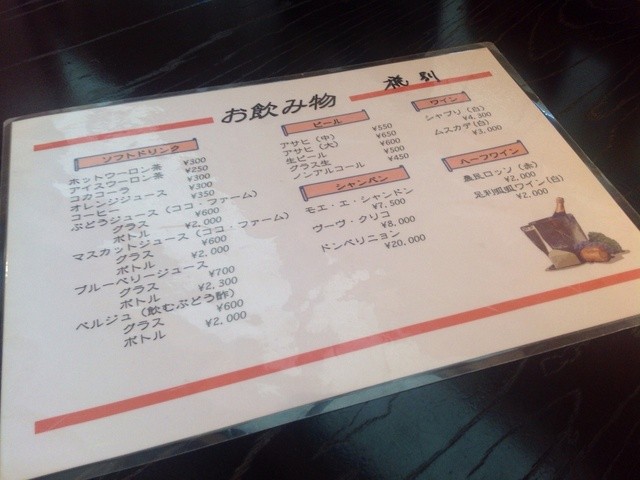 お飲み物
ソフトドリンク
ホットウーロン茶 ¥300
アイスウーロン茶 ¥250
コカコーラ ¥300
オレンジジュース ¥300
コーヒー ¥350
ぶどうジュース(ココ・ファーム)
グラス ¥600
ボトル ¥2,000
マスカットジュース(ココ・ファーム)
グラス ¥600
ボトル ¥2,000
ブルーベリージュース
グラス ¥700
ボトル ¥2,300
ベルジュ(飲むぶどう酢)
グラス ¥600
ボトル ¥2,000
ビール
アサヒ(中) ¥550
アサヒ(大) ¥650
生ビール ¥600
グラス生 ¥500
ノンアルコール ¥450
シャンパン
モエ・エ・シャンドン
¥7,500
ヴーヴ・クリコ
¥8,000
ドンペリニョン
¥20,000
ワイン
シャブリ(白)
¥4,300
ムスカデ(白)
¥3,000
ハーフワイン
農民ロッソ(赤)
¥2,000
足利呱呱ワイン(白)
¥2,000